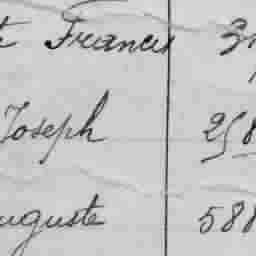 Francis 3
Joseph 258
uguste 588